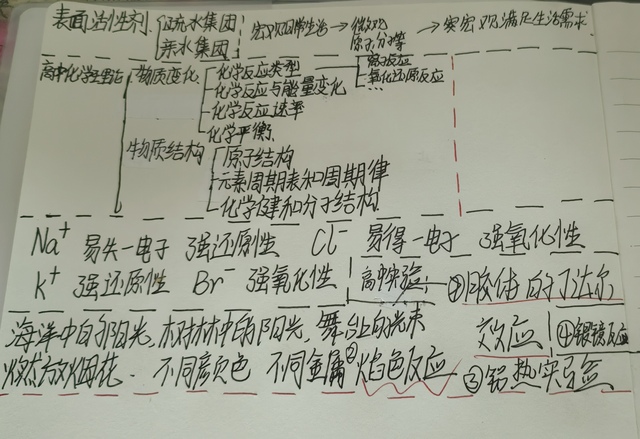 表面活性剂 疏水集团 宏观日常生活→微观 →实宏观满足生活需求
亲水集团 原子分子等
高中化学理论 物质变化 化学反应类型 离子反应
氧化还原反应
化学反应与能量变化
化学反应速率
化学平衡
物质结构 原子结构
元素周期表和周期律
化学键和分子结构
Na⁺ 易失一电子 强还原性 Cl⁻ 易得一电子 强氧化性
K⁺ 强还原性 Br⁻ 强氧化性 高中实验: ①胶体的丁达尔
海洋中的阳光,树林中的阳光,舞台的光束 效应 ④银镜反应
燃放烟花. 不同颜色 不同金属 ②焰色反应 ③铝热实验